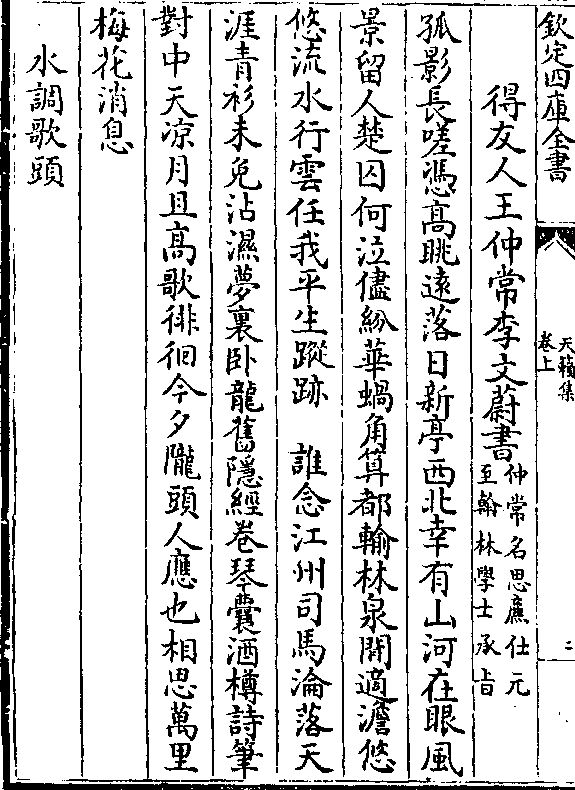 欽定四庫全書
天籟集
卷上
二
得友人王仲常李文蔚書
仲常名思廉仕元
至翰林學士承㫖
孤影長嗟憑高眺遠落日新亭西北幸有山河在眼風
景留人楚囚何泣儘紛華蝸角算都輸林泉閒適澹悠
悠流水行雲任我平生蹤跡　誰念江州司馬淪落天
涯青衫未免沾濕夢裏卧龍舊隱經卷琴囊酒樽詩筆
對中天凉月且高歌徘徊今夕隴頭人應也相思萬里
梅花消息
水調歌頭